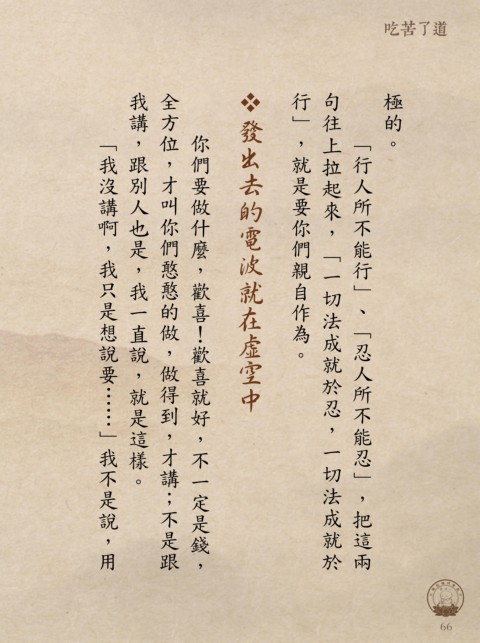 吃苦了道
極的。
「行人所不能行」、「忍人所不能忍」，把這兩
句往上拉起來，「一切法成就於忍，一切法成就於
行」，就是要你們親自作為。
❖發出去的電波就在虛空中
你們要做什麼，歡喜！歡喜就好，不一定是錢，
全方位，才叫你們憨憨的做，做得到，才講；不是跟
我講，跟別人也是，我一直說，就是這樣。
「我沒講啊，我只是想說要⋯⋯」我不是說，用
66